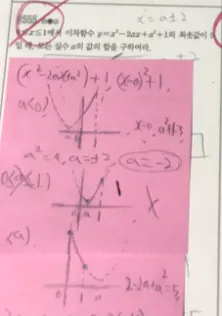 x=a±2
0555
0≤x≤1에서 이차함수 y=x²-2ax+a²+1의 최솟값이
일 때, 모든 실수 a의 값의 합을 구하여라.
(x²-2ax+a²)+1 (x-a)²+1
a<0
x=0, a²+1=5
a²=4, a=±2 a=-2
0 a 1
2-2a+a²=5